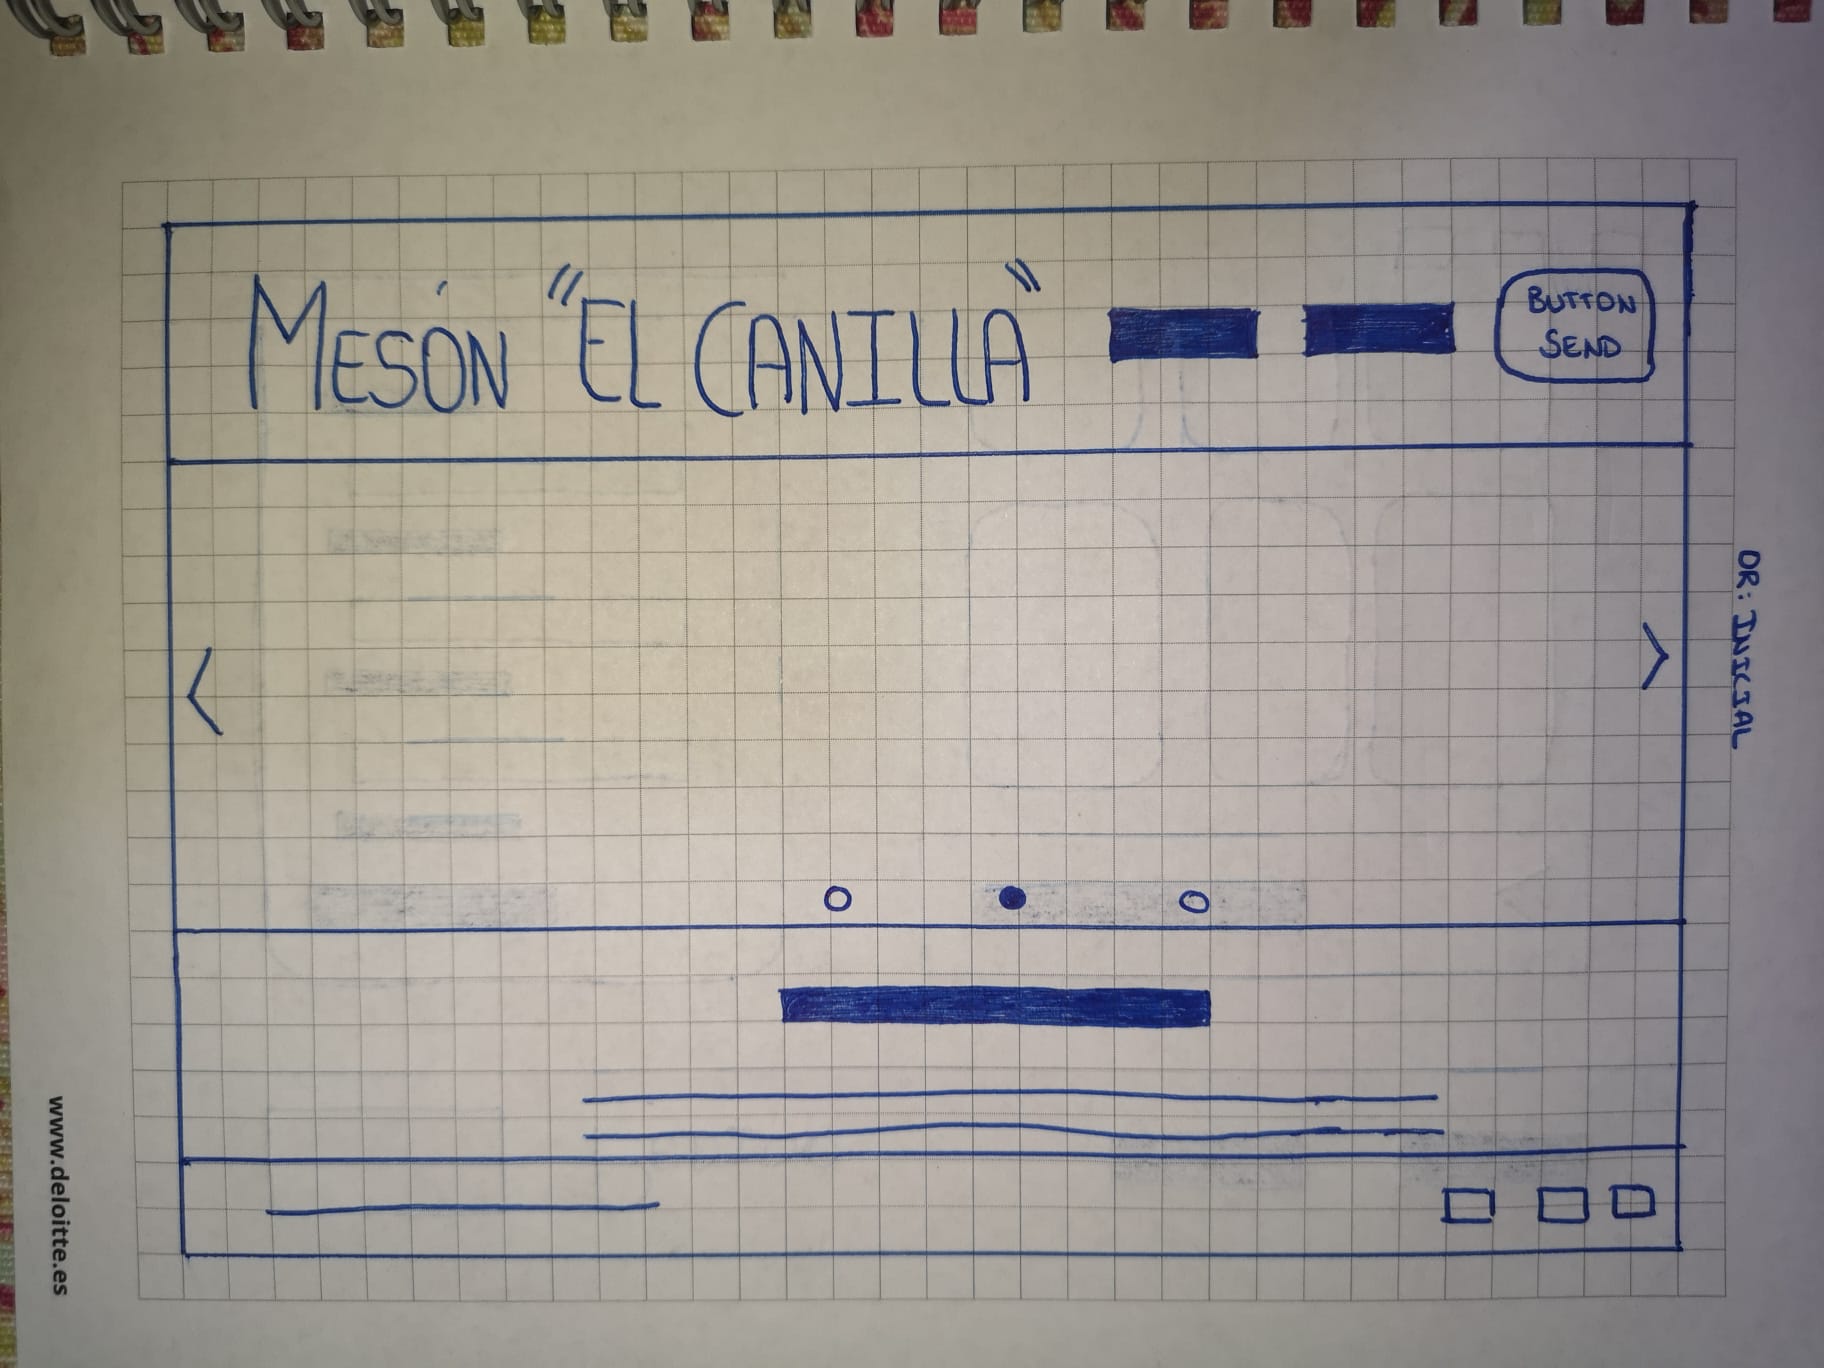 MESÓN "EL CANILLA"
BUTTON
SEND
DR: INICIAL
www.deloitte.es